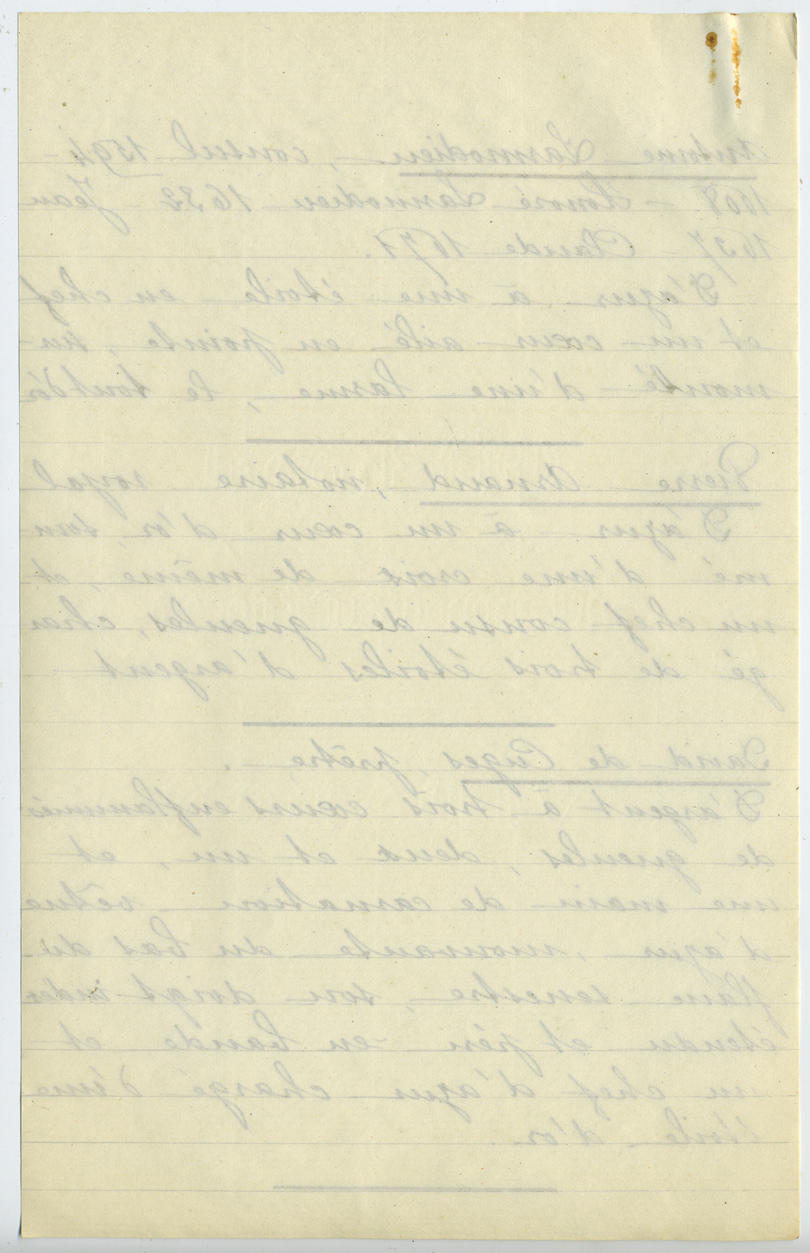 Antoine Lasmodieu –, consul 1594–
1608 – Honoré Lasmodieu 1632 Jean
1637 Claude 1671.
D'azur à une étoile en chef
et un cœur ailé en pointe, sur-
monté d'une larme, le tout d'or
Pierre Arnaud, notaire royal
D'azur à un cœur d'or, som-
mé d'une croix de même, et
un chef cousu de gueules, char
gé de trois étoiles d'argent
David de Cuges, prêtre –.
D'argent à trois cœurs enflammés
de gueules, deux et un, et
une main de carnation vêtue
d'azur, mouvante du bas du
flanc senestre, son doigt index
étendu et péri en bande et
un chef d'azur chargé d'une
étoile d'or.